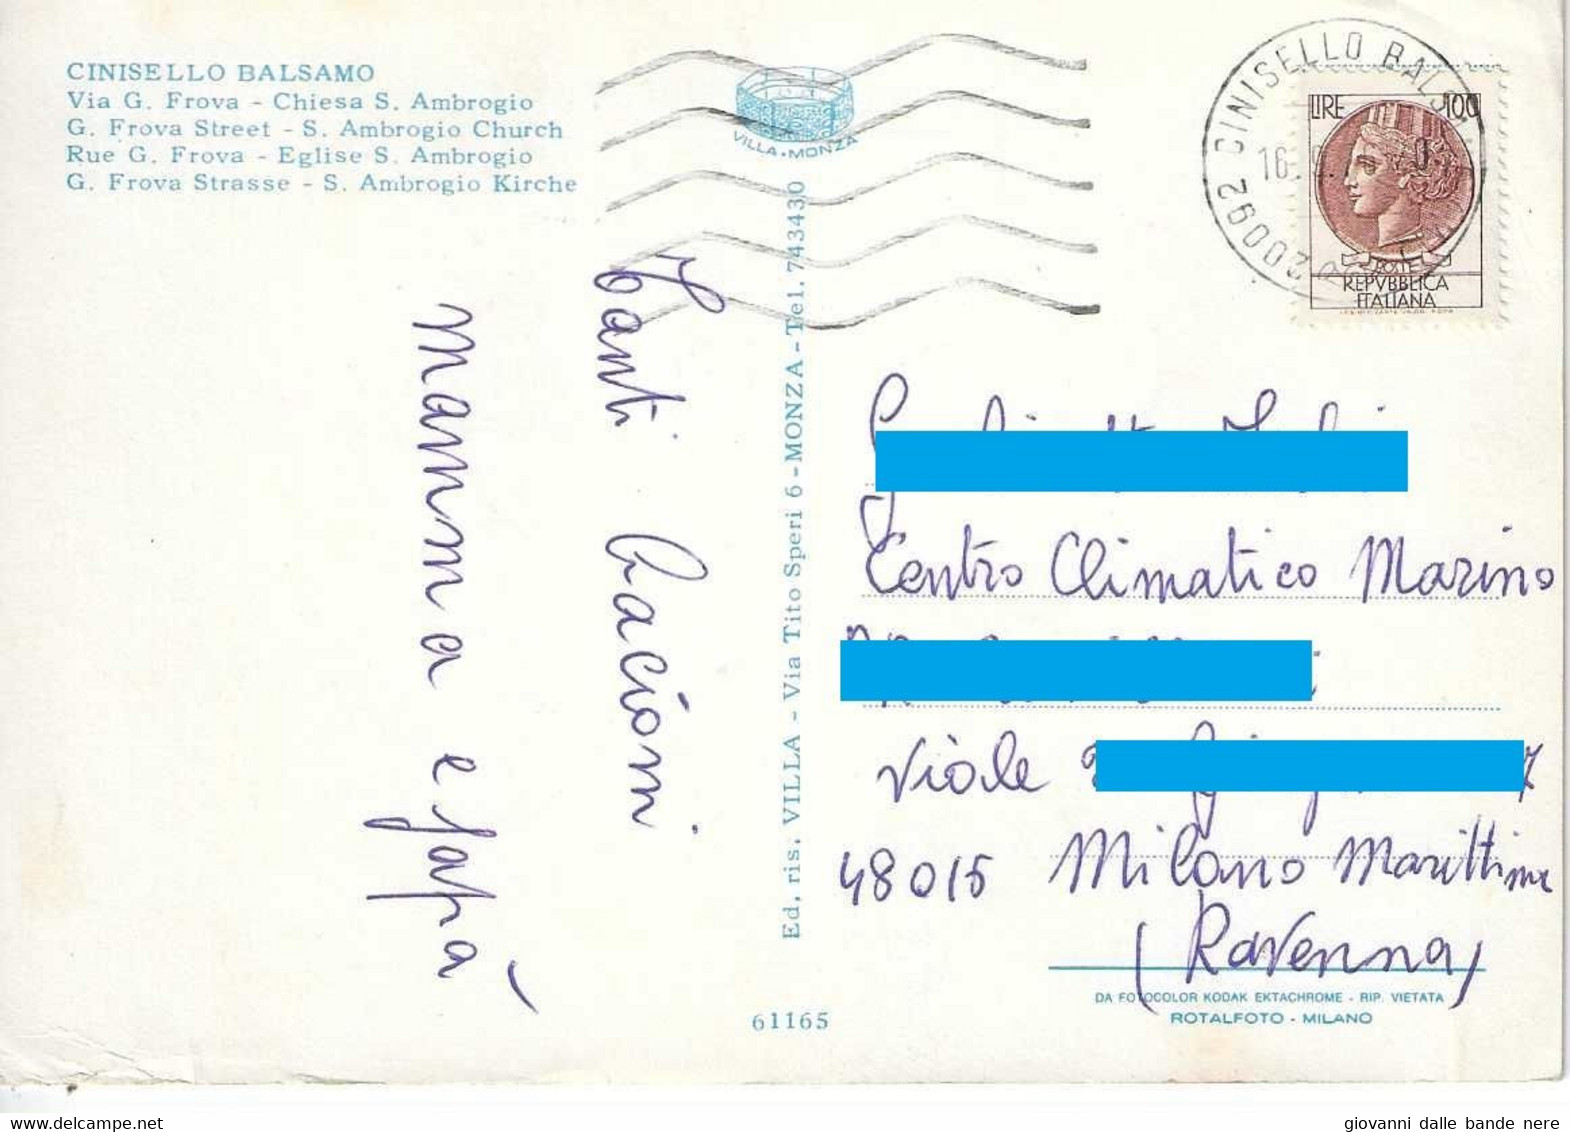 CINISELLO BALSAMO
Via G. Frova - Chiesa S. Ambrogio
G. Frova Street - S. Ambrogio Church
Rue G. Frova - Eglise S. Ambrogio
G. Frova Strasse - S. Ambrogio Kirche
VILLA - MONZA
20092 CINISELLO BALS
16.
LIRE 100
POSTE
REPVBBLICA
ITALIANA
Tanti bacioni
mamma e papà
Ed. ris. VILLA - Via Tito Speri 6 - MONZA - Tel. 743430
Centro Climatico Marino
Viale
7
48015 Milano Marittima
(Ravenna)
DA FOTOCOLOR KODAK EKTACHROME - RIP. VIETATA
ROTALFOTO - MILANO
61165
www.delcampe.net
giovanni dalle bande nere